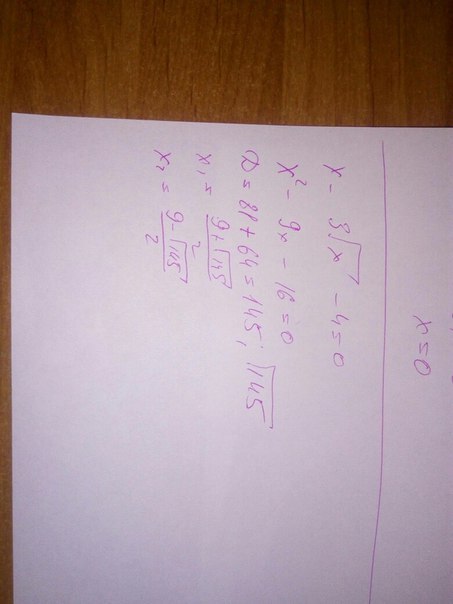 x=0
x - 3√x - 4=0
x² - 9x - 16=0
D = 81+64=145; √145
x₁ = 9+√145 / 2
x₂ = 9-√145 / 2